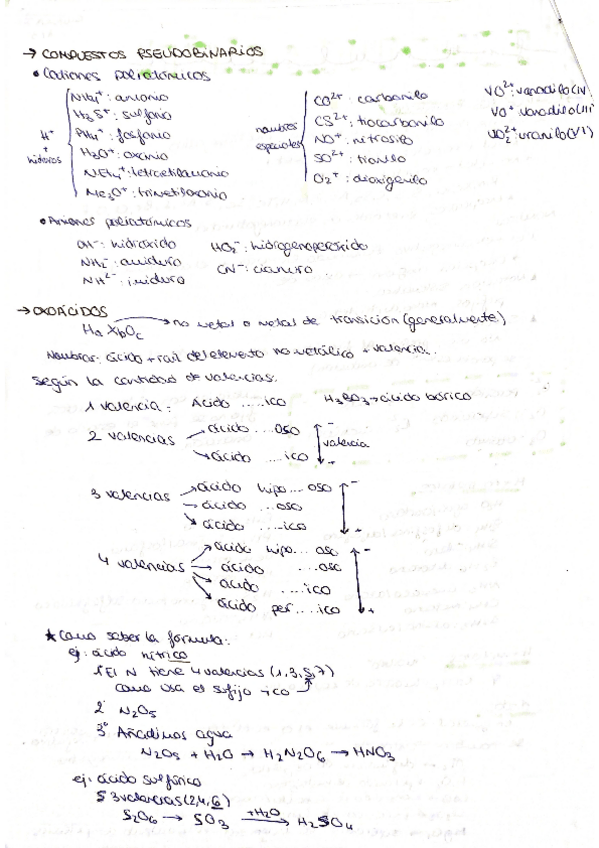 → COMPUESTOS PSEUDOBINARIOS
• Cationes poliatómicos
H⁺ + hidruros
NH₄⁺: amonio
H₃S⁺: sulfonio
PH₄⁺: fosfonio
H₃O⁺: oxonio
NEt₄⁺: tetraetilamonio
Me₃O⁺: trimetiloxonio
nombres especiales
CO²⁺: carbonilo
CS²⁺: tiocarbonilo
NO⁺: nitrosilo
SO²⁺: tionilo
O₂⁺: dioxigenilo
VO²⁺: vanadilo(IV)
VO⁺: vanadilo(III)
UO₂²⁺: uranilo(VI)
• Aniones poliatómicos
OH⁻: hidróxido
NH₂⁻: amiduro
NH²⁻: imiduro
HO₂⁻: hidrogenoperóxido
CN⁻: cianuro
→ OXOÁCIDOS
HaXbOc → no metal o metal de transición (generalmente)
Nombrar: ácido + raíz del elemento no metálico + valencia..
según la cantidad de valencias.
1 valencia: Ácido ....ico H₃BO₃ → ácido bórico
2 valencias → ácido ...oso - valencia
→ ácido ....ico +
3 valencias → ácido hipo...oso -
→ ácido ...oso
→ ácido ....ico +
4 valencias → ácido hipo... oso -
→ ácido ...oso
→ ácido ....ico
→ ácido per ....ico +
★ Como saber la fórmula:
ej: ácido nítrico
1º El N tiene 4 valencias (1,3,5,7)
como usa el sufijo ico
2º N₂O₅
3º Añadimos agua
N₂O₅ + H₂O → H₂N₂O₆ → HNO₃
ej: ácido sulfúrico
S 3 valencias (2,4,6)
S₂O₆ → SO₃ +H₂O → H₂SO₄